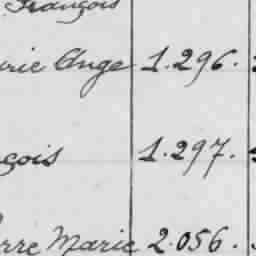 François
rie Ange 1.296.
çois 1.297.
rre Marie 2.056.